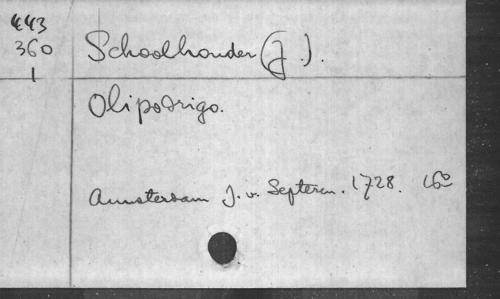 443
360
1
Schoolhouder (J.).
Olipodrigo.
Amsterdam J. v. Septeren. 1728. 16°